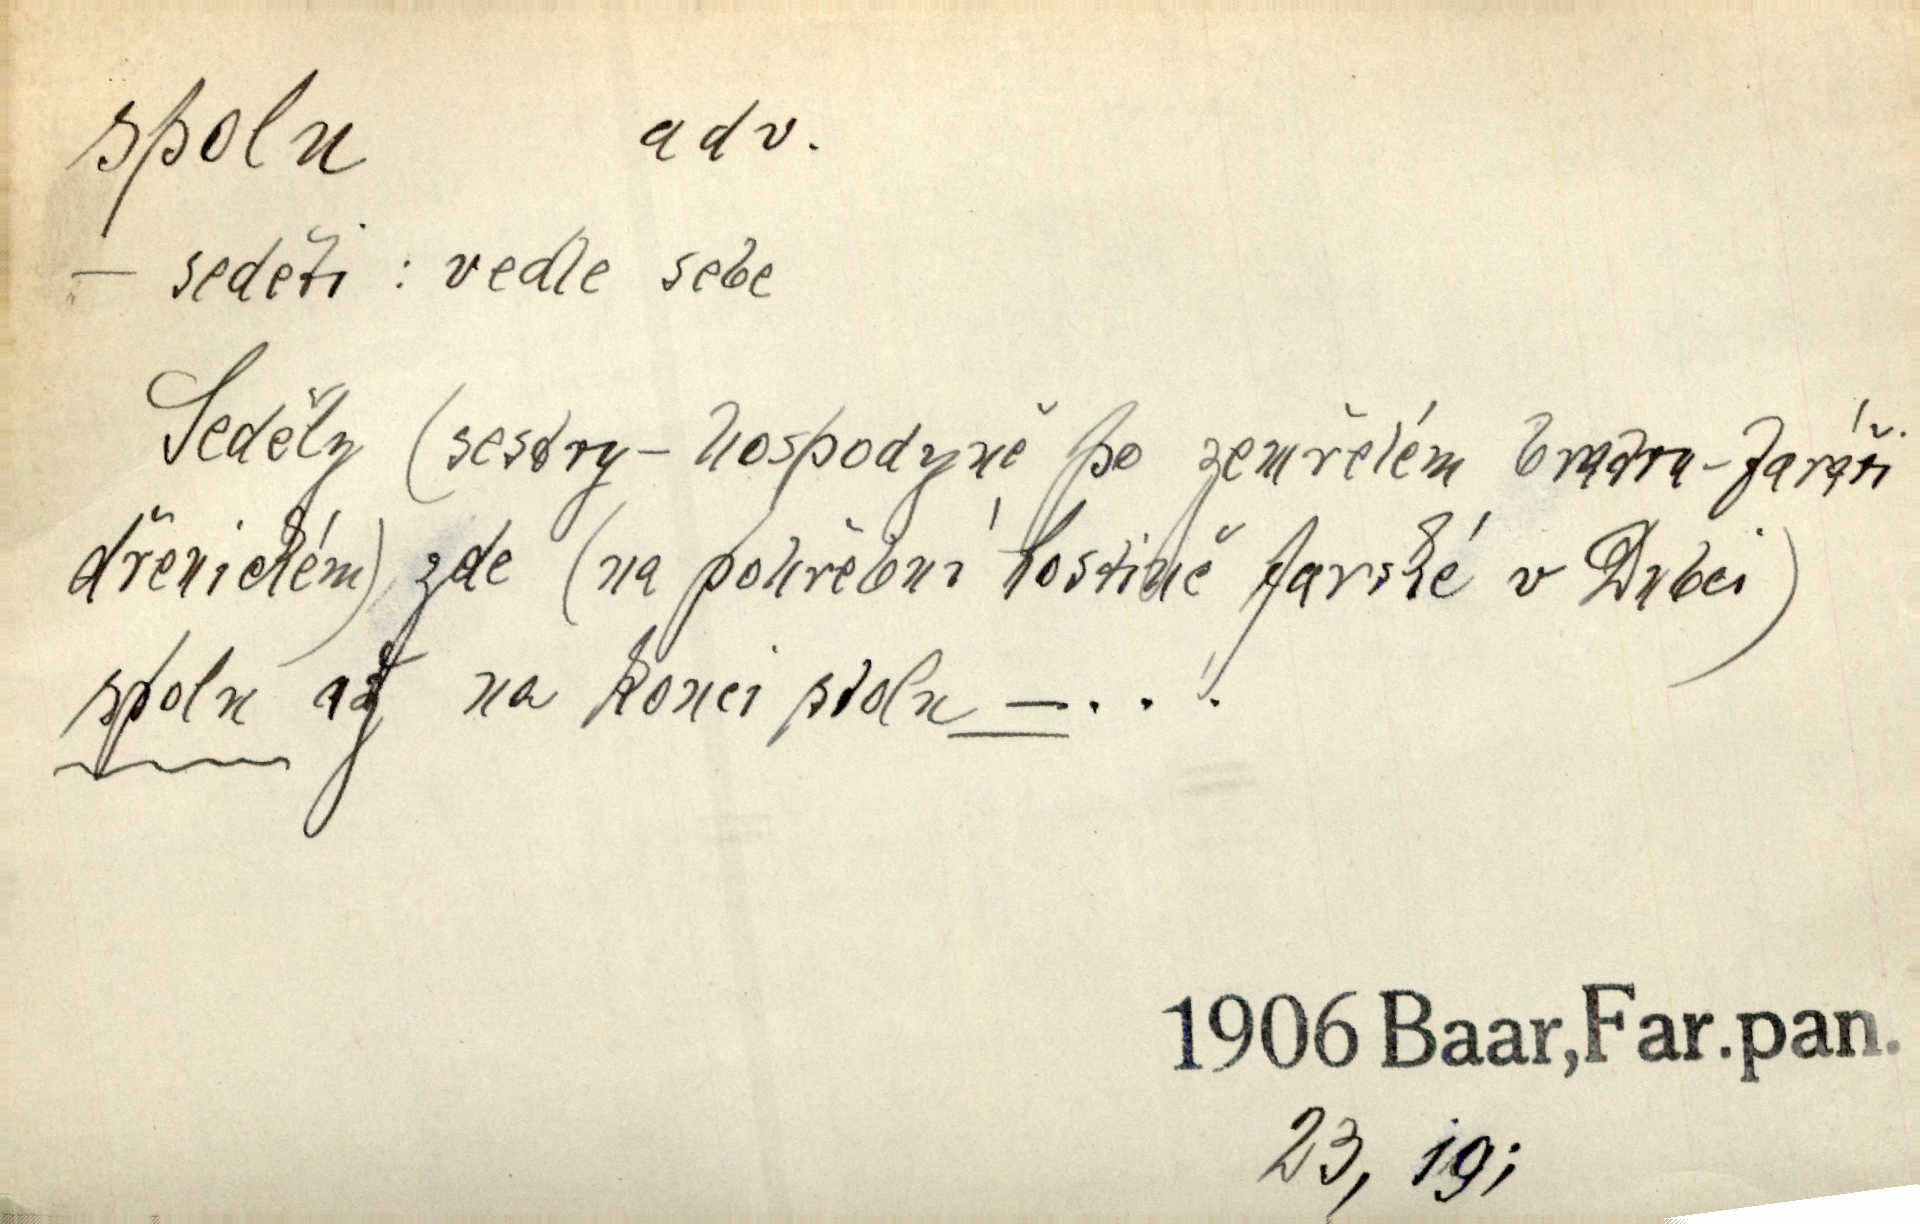 spolu adv.
– seděti : vedle sebe
Seděly (sestry – hospodyně po zemřelém bratru – faráři
dřenickém) zde (na pohřební hostině farské v Dubci)
spolu až na konci stolu – . . .
1906 Baar, Far. pan.
23, 19;